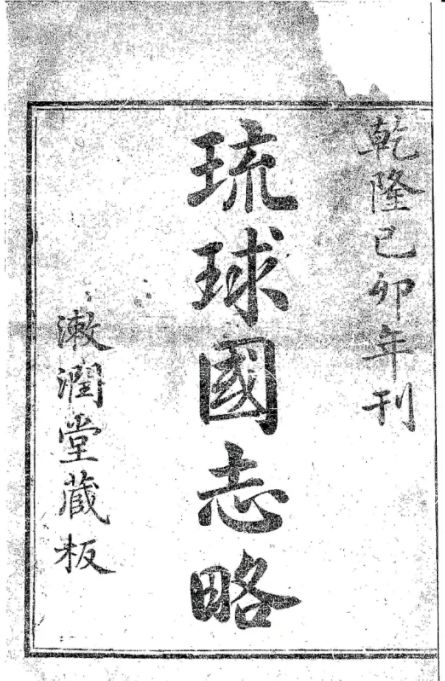 乾隆己卯年刊
琉球國志略
漱潤堂蔵板